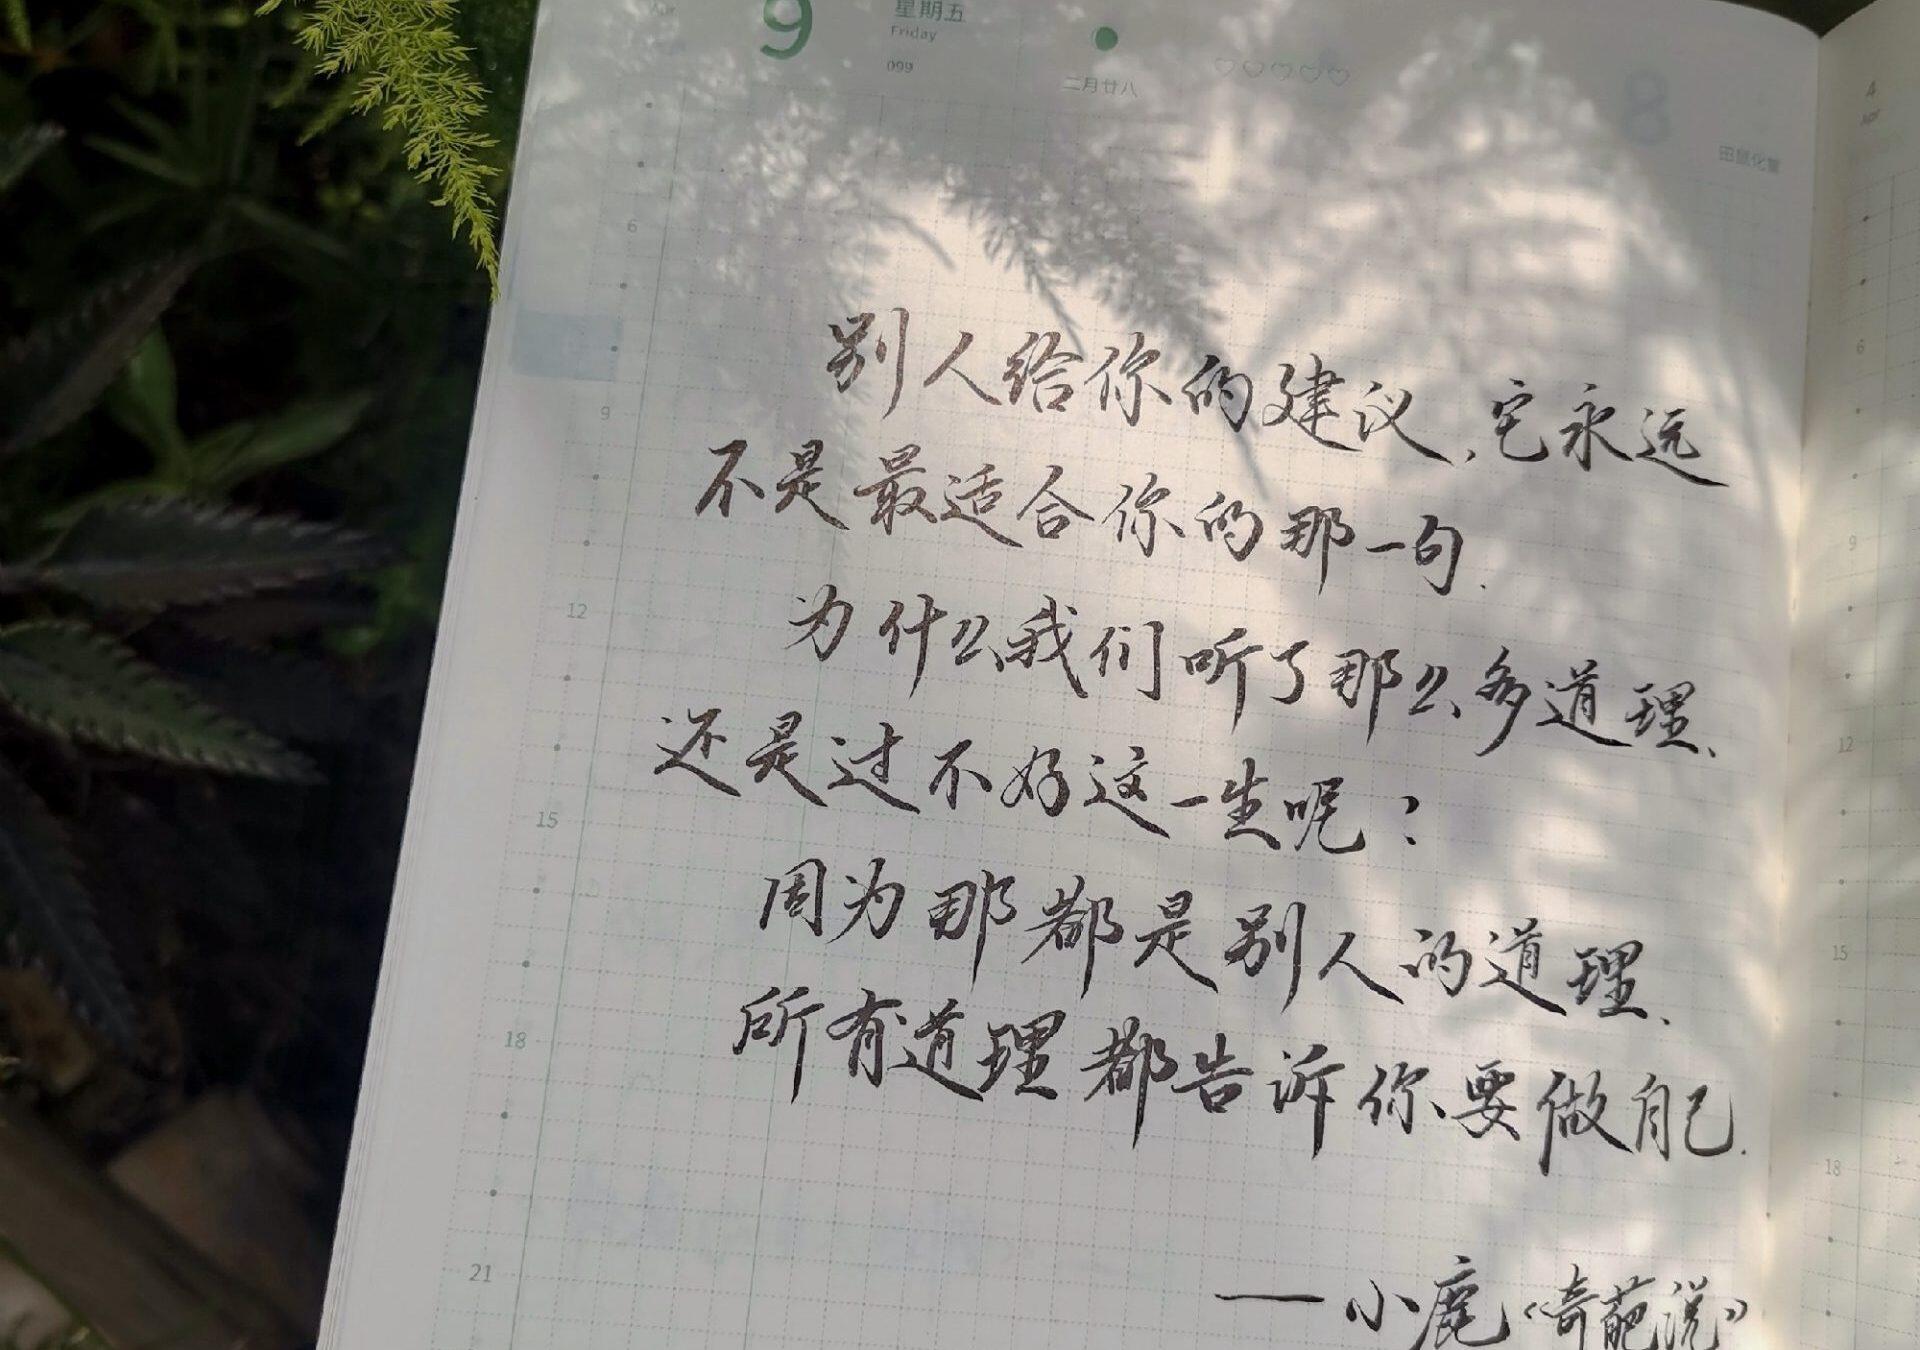 9
星期五
Friday
099
二月廿八
8
田鼠化鴽
别人给你的建议、它永远
不是最适合你的那一句.
为什么我们听了那么多道理、
还是过不好这一生呢?
因为那都是别人的道理、
所有道理都告诉你要做自己.
——小鹿《奇葩说》
6
9
12
15
18
21
4
Apr
6
9
12
15
18